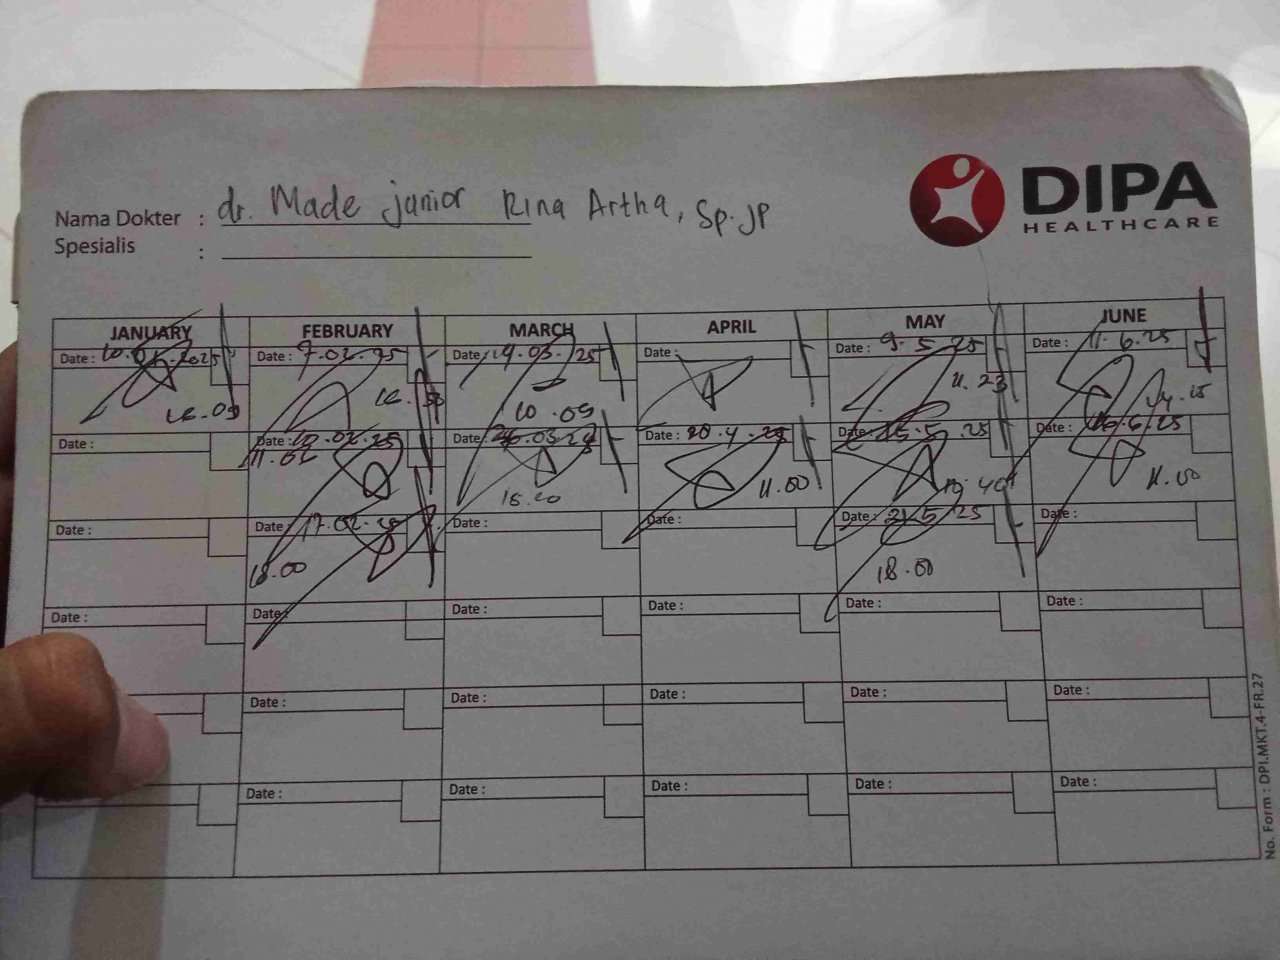 DIPA
HEALTHCARE
Nama Dokter : dr. Made junior Rina Artha, Sp.JP
Spesialis :
JANUARY FEBRUARY MARCH APRIL MAY JUNE
Date : Date : 7.02.25 Date : 19.03.25 Date : Date : 9.5.25 Date : 11.6.25
16.09 10.09 11.23
Date : Date : 10.02.25 Date : Date : 20.4.25 Date : Date : 16.6.25
11.02 15.20 11.00 11.00
Date : Date : 17.02.25 Date : Date : Date : 21.5.25 Date :
18.00 18.00
Date : Date : Date : Date : Date : Date :
Date : Date : Date : Date : Date :
Date : Date : Date : Date : Date :
No. Form : DPI.MKT.4-FR.27